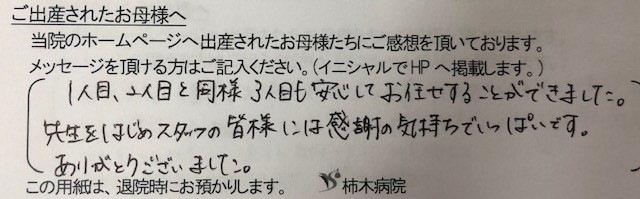 ご出産されたお母様へ
当院のホームページへ出産されたお母様たちにご感想を頂いております。
メッセージを頂ける方はご記入ください。(イニシャルでHPへ掲載します。)
1人目、2人目と同様3人目も安心してお任せすることができました。
先生をはじめスタッフの皆様には感謝の気持ちでいっぱいです。
ありがとうございました。
この用紙は、退院時にお預かりします。 柿木病院